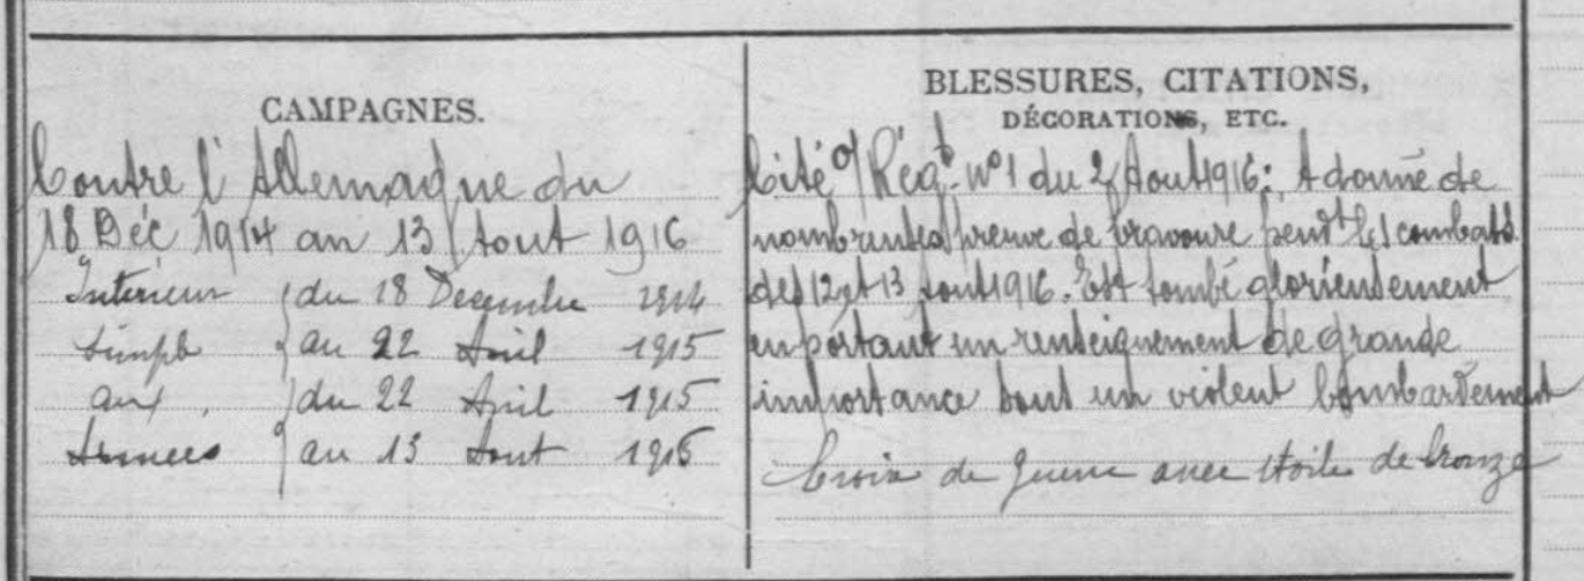 CAMPAGNES.
Contre l'Allemagne du
18 Déc 1914 au 13 Aout 1916
Intérieur du 18 Decembre 1914
simple au 22 Avril 1915
aux du 22 Avril 1915
Armées au 13 Aout 1916
BLESSURES, CITATIONS,
DÉCORATIONS, ETC.
Cité O/ Régt. N° 1 du 2 Aout 1916: A donné de
nombreuses preuve de bravoure pendt les combats
des 12 et 13 aout 1916. Est tombé glorieusement
en portant un renseignement de grande
importance sous un violent bombardement
Croix de guerre avec étoile de bronze